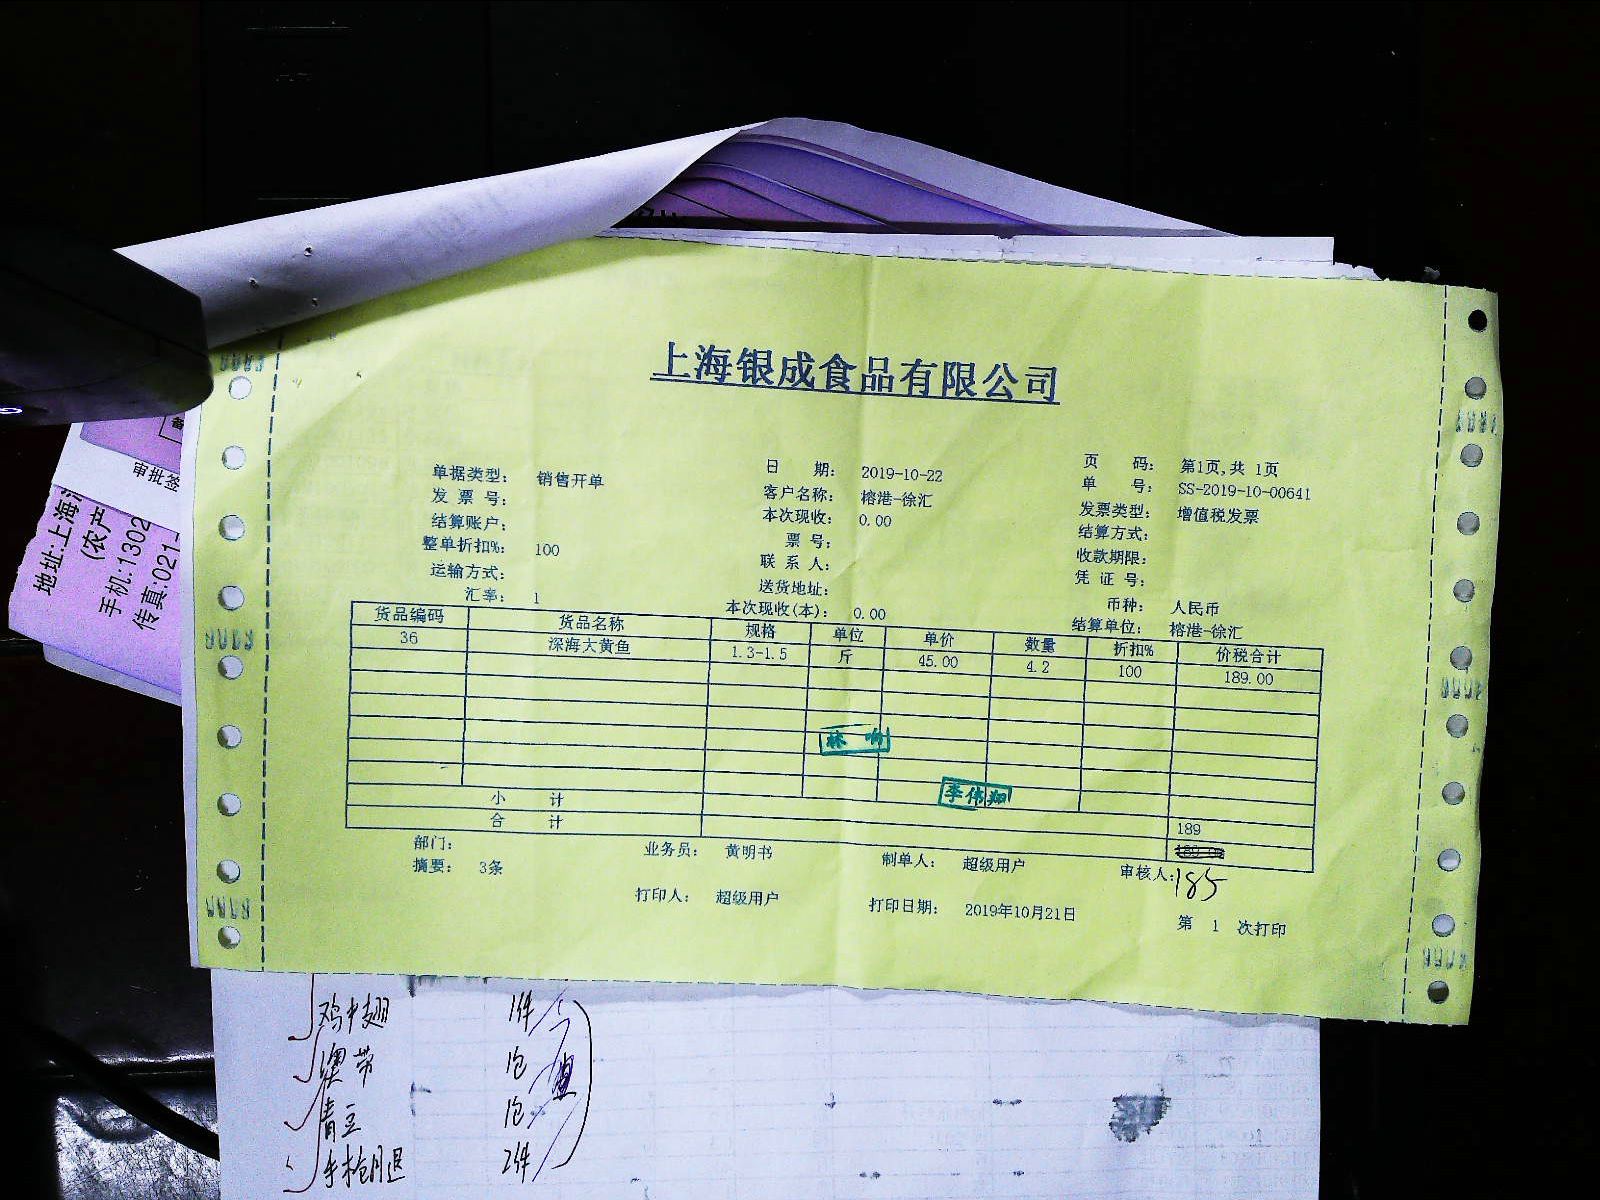 上海银成食品有限公司
单据类型： 销售开单 日 期： 2019-10-22 页 码： 第1页,共 1页
发 票 号： 客户名称： 榕港-徐汇 单 号： SS-2019-10-00641
结算账户： 本次现收： 0.00 发票类型： 增值税发票
整单折扣%： 100 票 号： 结算方式：
运输方式： 联 系 人： 收款期限：
汇率： 1 送货地址： 凭 证 号：
本次现收(本)： 0.00 币种： 人民币
结算单位： 榕港-徐汇
货品编码 货品名称 规格 单位 单价 数量 折扣% 价税合计
36 深海大黄鱼 1.3-1.5 斤 45.00 4.2 100 189.00
林
李伟翔
小 计 189
合 计
185
部门： 业务员： 黄明书 制单人： 超级用户 审核人：
摘要： 3条
打印人： 超级用户 打印日期： 2019年10月21日 第 1 次打印
审批签
地址:上海
(农产
手机:1302
传真:021-
鸡中翅 1件
澳带 1包
青豆 1包
手枪腿 2件